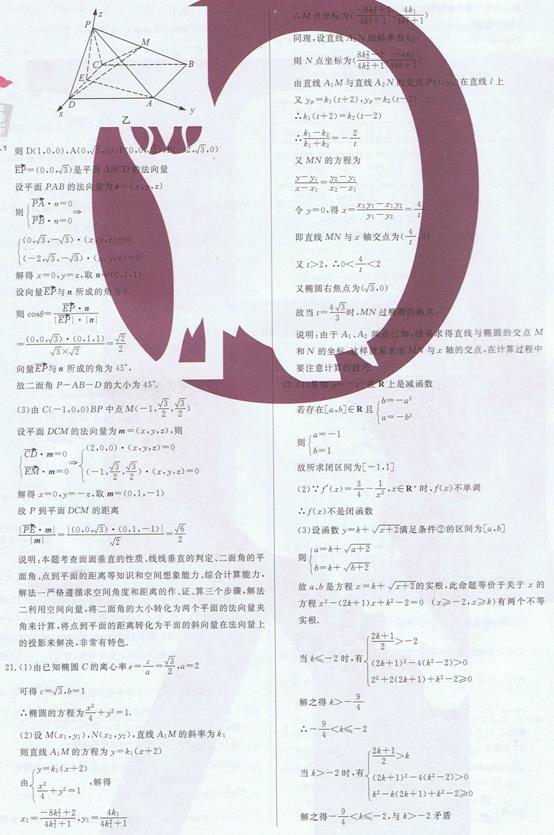 z
P
M
C
B
E
D
A
x
y
乙
则 D(1,0,0),A(0,√3,0),P(0,0,√3),B(-2,√3,0)
EP=(0,0,√3)是平面 ABCD 的法向量
设平面 PAB 的法向量为 n=(x,y,z)
则 { PA·n=0
PB·n=0 ⇒
{ (0,√3,-√3)·(x,y,z)=0
(-2,√3,-√3)·(x,y,z)=0
解得 x=0,y=z,取 n=(0,1,1)
设向量EP与 n 所成的角为θ
则 cosθ= EP·n / |EP|·|n|
= (0,0,√3)·(0,1,1) / √3×√2 = √2/2
向量EP与 n 所成的角为 45°,
故二面角 P-AB-D 的大小为 45°.
(3)由 C(-1,0,0)BP 中点 M(-1,√3/2,√3/2)
设平面 DCM 的法向量为 m=(x,y,z),则
{ CD·m=0
EM·m=0 ⇒ { (2,0,0)·(x,y,z)=0
(-1,√3/2,√3/2)·(x,y,z)=0
解得 x=0,y=-z,取 m=(0,1,-1)
故 P 到平面 DCM 的距离
|PE·m|/|m| = |(0,0,√3)·(0,1,-1)|/√2 = √6/2
说明:本题考查面面垂直的性质、线线垂直的判定、二面角的平
面角、点到平面的距离等知识和空间想象能力、综合计算能力,
解法一严格遵循求空间角度和距离的作、证、算三个步骤,解法
二利用空间向量,将二面角的大小转化为两个平面的法向量夹
角来计算,将点到平面的距离转化为平面的斜向量在法向量上
的投影来解决,非常有特色.
21.(1)由已知椭圆 C 的离心率 e=c/a=√3/2,a=2
可得 c=√3,b=1
∴椭圆的方程为 x²/4+y²=1.
(2)设 M(x₁,y₁),N(x₂,y₂),直线 A₁M 的斜率为 k₁
则直线 A₁M 的方程为 y=k₁(x+2)
由 { y=k₁(x+2)
x²/4+y²=1 ,解得
x₁=(-8k₁²+2)/(4k₁²+1),y₁=4k₁/(4k₁²+1)
∴M 点坐标为((-8k₁²+2)/(4k₁²+1),4k₁/(4k₁²+1))
同理,设直线 A₂N 的斜率为 k₂
则 N 点坐标为((8k₂²-2)/(4k₂²+1),-4k₂/(4k₂²+1))
由直线 A₁M 与直线 A₂N 的交点 P(t,yₚ)在直线 l 上
又 yₚ=k₁(t+2),yₚ=k₂(t-2)
∴k₁(t+2)=k₂(t-2)
∴(k₁-k₂)/(k₁+k₂)=-2/t
又 MN 的方程为
(y-y₁)/(x-x₁)=(y₂-y₁)/(x₂-x₁)
令 y=0,得 x=(x₂y₁-x₁y₂)/(y₁-y₂)=4/t
即直线 MN 与 x 轴交点为(4/t,0)
又 t>2,∴0<4/t<2
又椭圆右焦点为(√3,0)
故当 t=4√3/3时,MN 过椭圆的焦点.
说明:由于 A₁、A₂ 两点已知,故易求得直线与椭圆的交点 M
和 N 的坐标,这样就易求出 MN 与 x 轴的交点,在计算过程中
要注意计算的技巧.
22.(1)易知 y=-x³ 在 R 上是减函数
若存在[a,b]∈R 且 { b=-a³
a=-b³
则 { a=-1
b=1
故所求闭区间为[-1,1]
(2)∵f′(x)=3/4-1/x²,x∈R⁺时,f(x)不单调
∴f(x)不是闭函数
(3)设函数 y=k+√(x+2)满足条件②的区间为[a,b]
则 { a=k+√(a+2)
b=k+√(b+2)
故 a、b 是方程 x=k+√(x+2)的实根,此命题等价于关于 x 的
方程 x²-(2k+1)x+k²-2=0 (x≥-2,x≥k)有两个不等
实根.
当 k≤-2 时,有 { (2k+1)/2>-2
(2k+1)²-4(k²-2)>0
2²+2(2k+1)+k²-2≥0
解之得 k>-9/4
∴-9/4<k≤-2
当 k>-2 时,有 { (2k+1)/2>k
(2k+1)²-4(k²-2)>0
k²-k(2k+1)+k²-2≥0
解之得-9/4<k≤-2,与 k>-2 矛盾